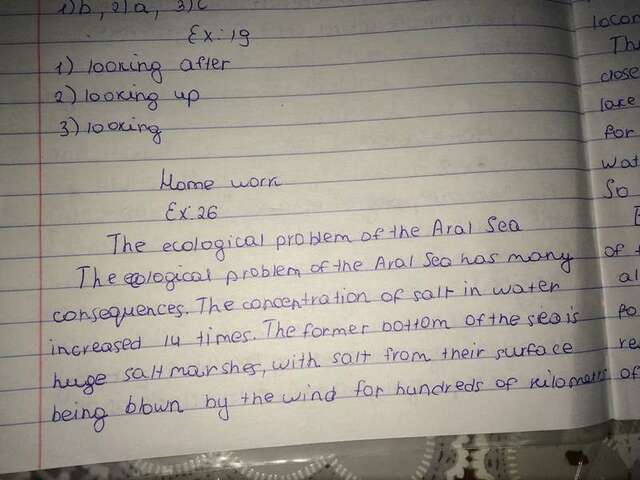 1) b, 2) a, 3) c
Ex. 19
1) looking after
2) looking up
3) looking
Home work
Ex. 26
The ecological problem of the Aral Sea
The eological problem of the Aral Sea has many
consequences. The concentration of salt in water
increased 14 times. The former bottom of the sea is
huge salt marshes, with salt from their surface
being blown by the wind for hundreds of kilometrs of
Th
lake
for
wat
So
of t
al
re